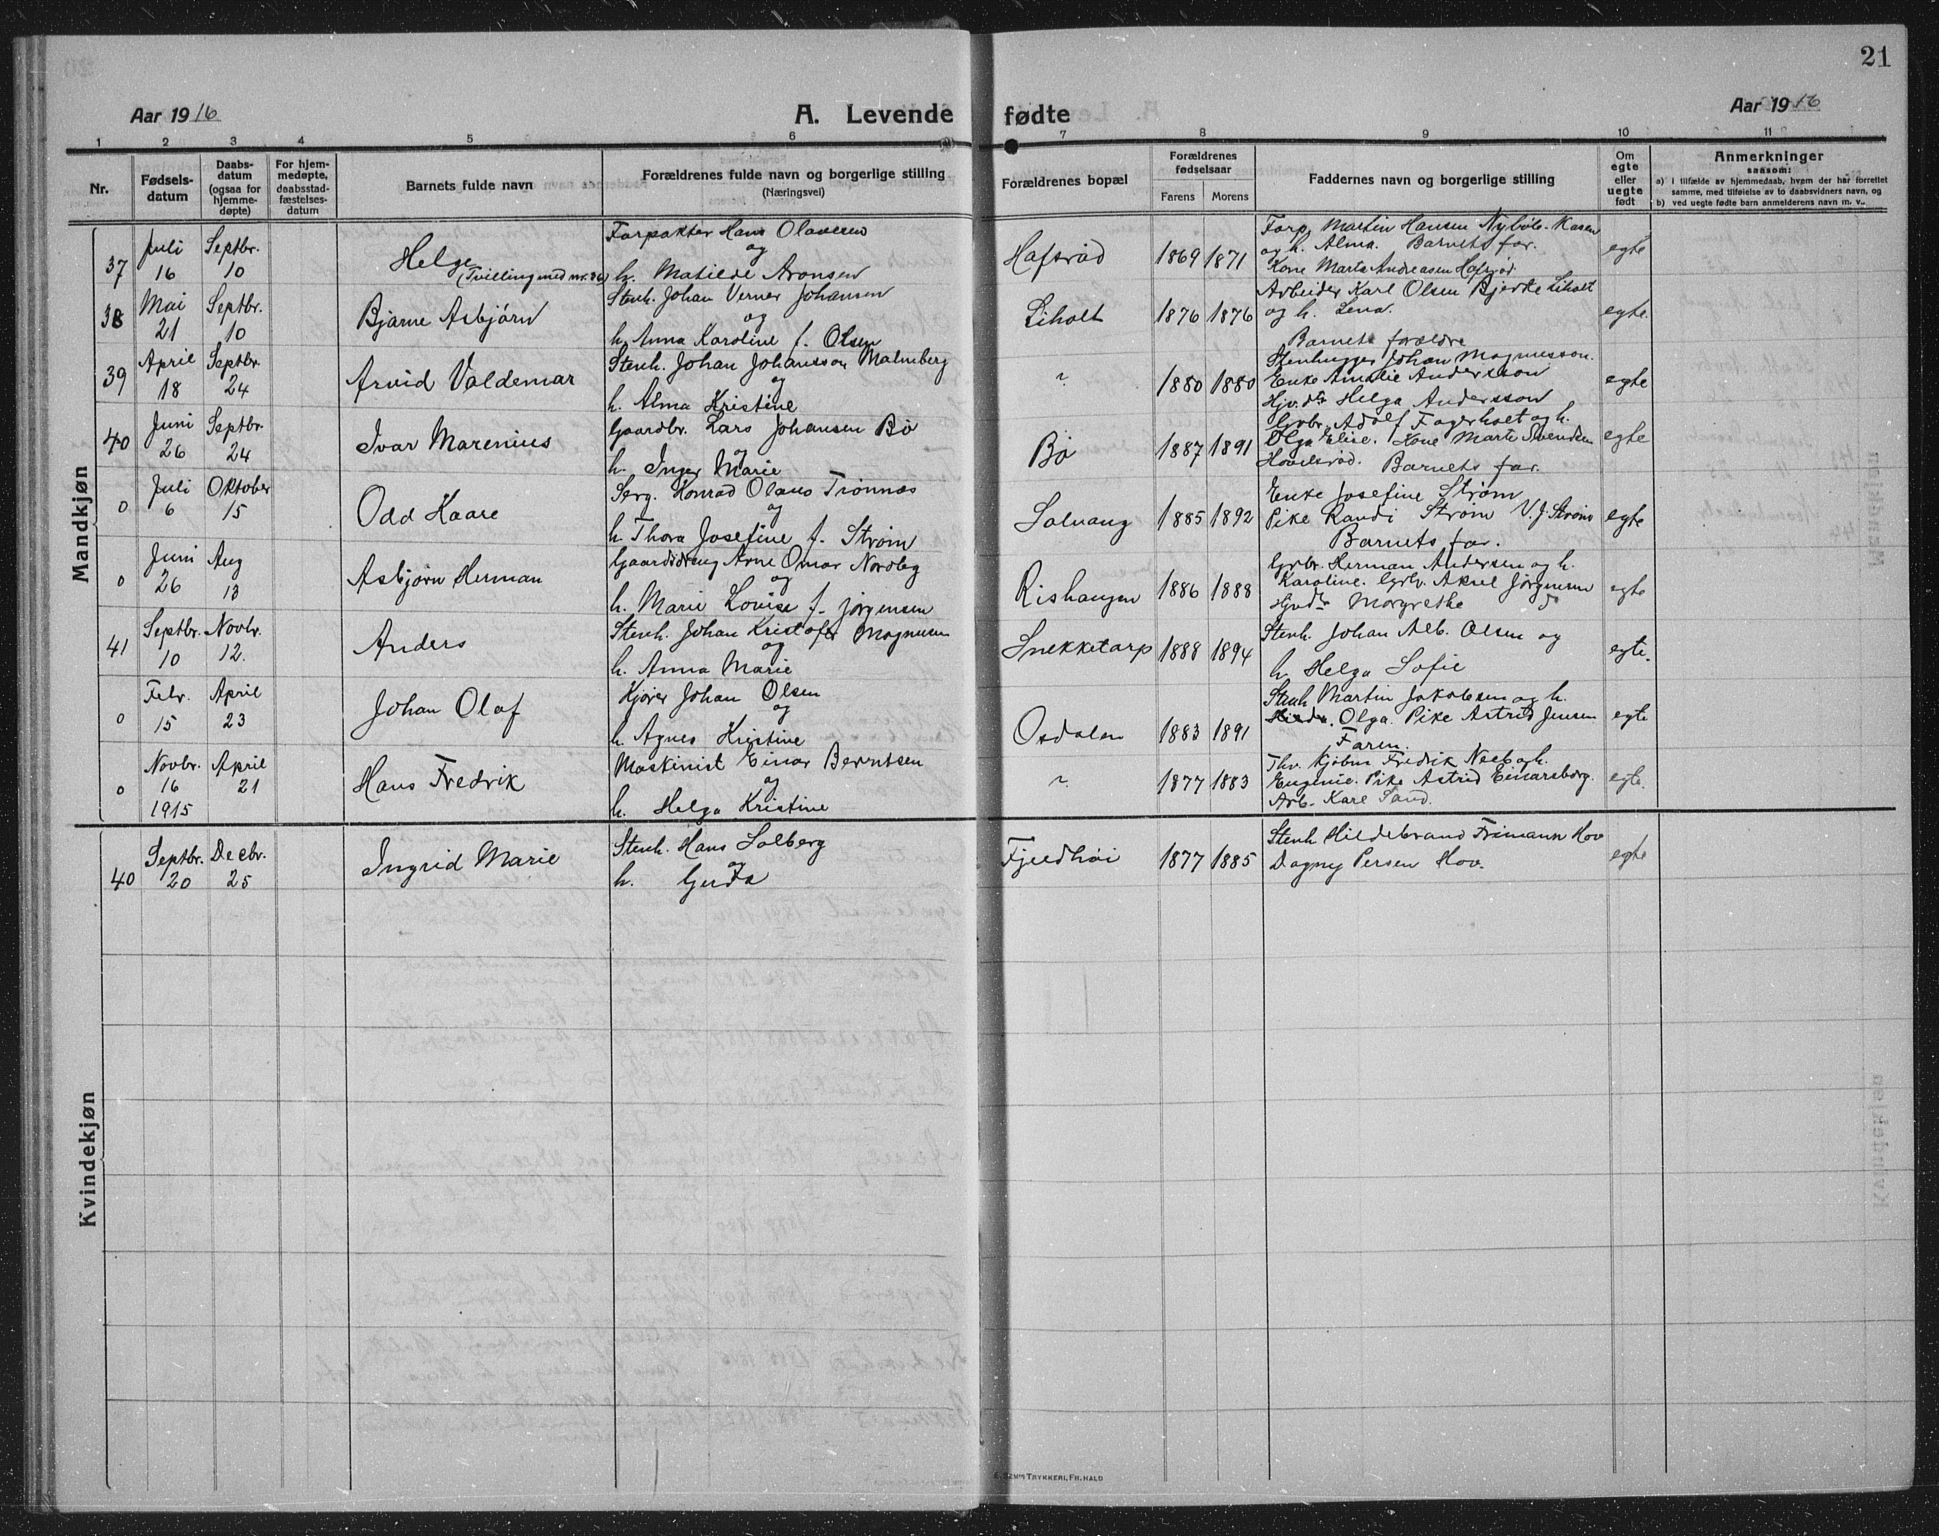 21
Aar 1916
A. Levende fødte
Aar 1916
1 2 3 4 5 6 7 8 9 10 11
Nr.
Fødsels-
datum
Daabs-
datum
(ogsaa for
hjemme-
døpte)
For hjem-
medøpte,
daabsstad-
fæstelses-
datum
Barnets fulde navn
Forældrenes fulde navn og borgerlige stilling
(Næringsvei)
Forældrenes bopæl
Forældrenes
fødselsaar
Farens Morens
Faddernes navn og borgerlige stilling
Om
egte
eller
uegte
født
Anmerkninger
saasom:
a) i tilfælde av hjemmedaab, hvem der har forrettet
samme, med tilføielse av to daabsvidners navn, og
b) ved uegte fødte barn anmelderens navn m. v..
Mandkjøn
37
Juli
16
Septbr.
10
Helge
(Tvilling med nr. 36)
Forpakter Hans Olavesen
og
h. Matilde Aronsen
Hafsrød
1869 1871
Forp. Martin Hansen Nybøle-Kasen
og h. Alma. Barnets far.
Kone Marta Andreasen Hafsrød
egte
38
Mai
21
Septbr.
10
Bjarne Asbjørn
Stenh. Johan Verner Johansen
og
h. Anna Karoline f. Olsen
Liholt
1876 1876
Arbeider Karl Olsen Bjerke Liholt
og h. Lena.
Barnets forældre
egte.
39
April
18
Septbr.
24
Arvid Valdemar
Stenh. Johan Johansson Malmberg
og
h. Alma Kristine
"
1880 1880
Stenhugger Johan Magnusson.
Enke Amalie Andersson
Hjv. d. Helga Andersson
egte
40
Juni
26
Septbr.
24
Ivar Marenius
Gaardbr. Lars Johansen Bø
og
h. Inger Marie
Bø
1887 1891
Grbr. Adolf Fagerholt og h.
Olga Elise. Kone Marte Svendsen
Hovelsrød. Barnets far.
egte
0
Juli
6
Oktober
15
Odd Kaare
Serg. Konrad Olaus Trønnæs
og
h. Thora Josefine f. Strøm
Solvang
1885 1892
Enke Josefine Strøm
Pike Randi Strøm V. J. Strøm
Barnets far.
egte
0
Juni
26
Aug
13
Asbjørn Herman
Gaarddreng Arne Omar Nordby
og
h. Marie Lovise f. Jørgensen
Rishaugen
1886 1888
Grbr. Herman Andersen og h.
Karoline. Grbr. Aksel Jørgensen
Hjvd. Margrethe do
egte
41
Septbr.
10
Novbr.
12.
Anders
Stenh. Johan Kristofer Magnusen
og
h. Anna Marie
Snekketarp
1888 1894
Stenh. Johan Alb. Olsen og
h. Helga Sofie
egte.
0
Febr.
15
April
23
Johan Olaf
Kjører Johan Olsen
og
h. Agnes Kristine
Osdalen
1883 1891
Stenh Martin Jakobsen og h.
Olga. Pike Astrid Jensen
Faren.
egte
0
Novbr.
16
1915
April
21
Hans Fredrik
Maskinist Einar Berntsen
og
h. Helga Kristine
"
1877 1883
Thv. Kjøbm Fredrik Neeb og h.
Eugenie. Pike Astrid Einarsborg.
Arb. Karl Sand.
egte.
Kvindekjøn
40
Septbr.
20
Decbr.
25
Ingrid Marie
Stenh. Hans Solberg
og
h. Gerda
Fjeldhøi
1877 1885
Stenh Hildebrand Frimann Hov
Dagny Persen Hov.
egte
E. Sems Trykkeri, Fr.hald